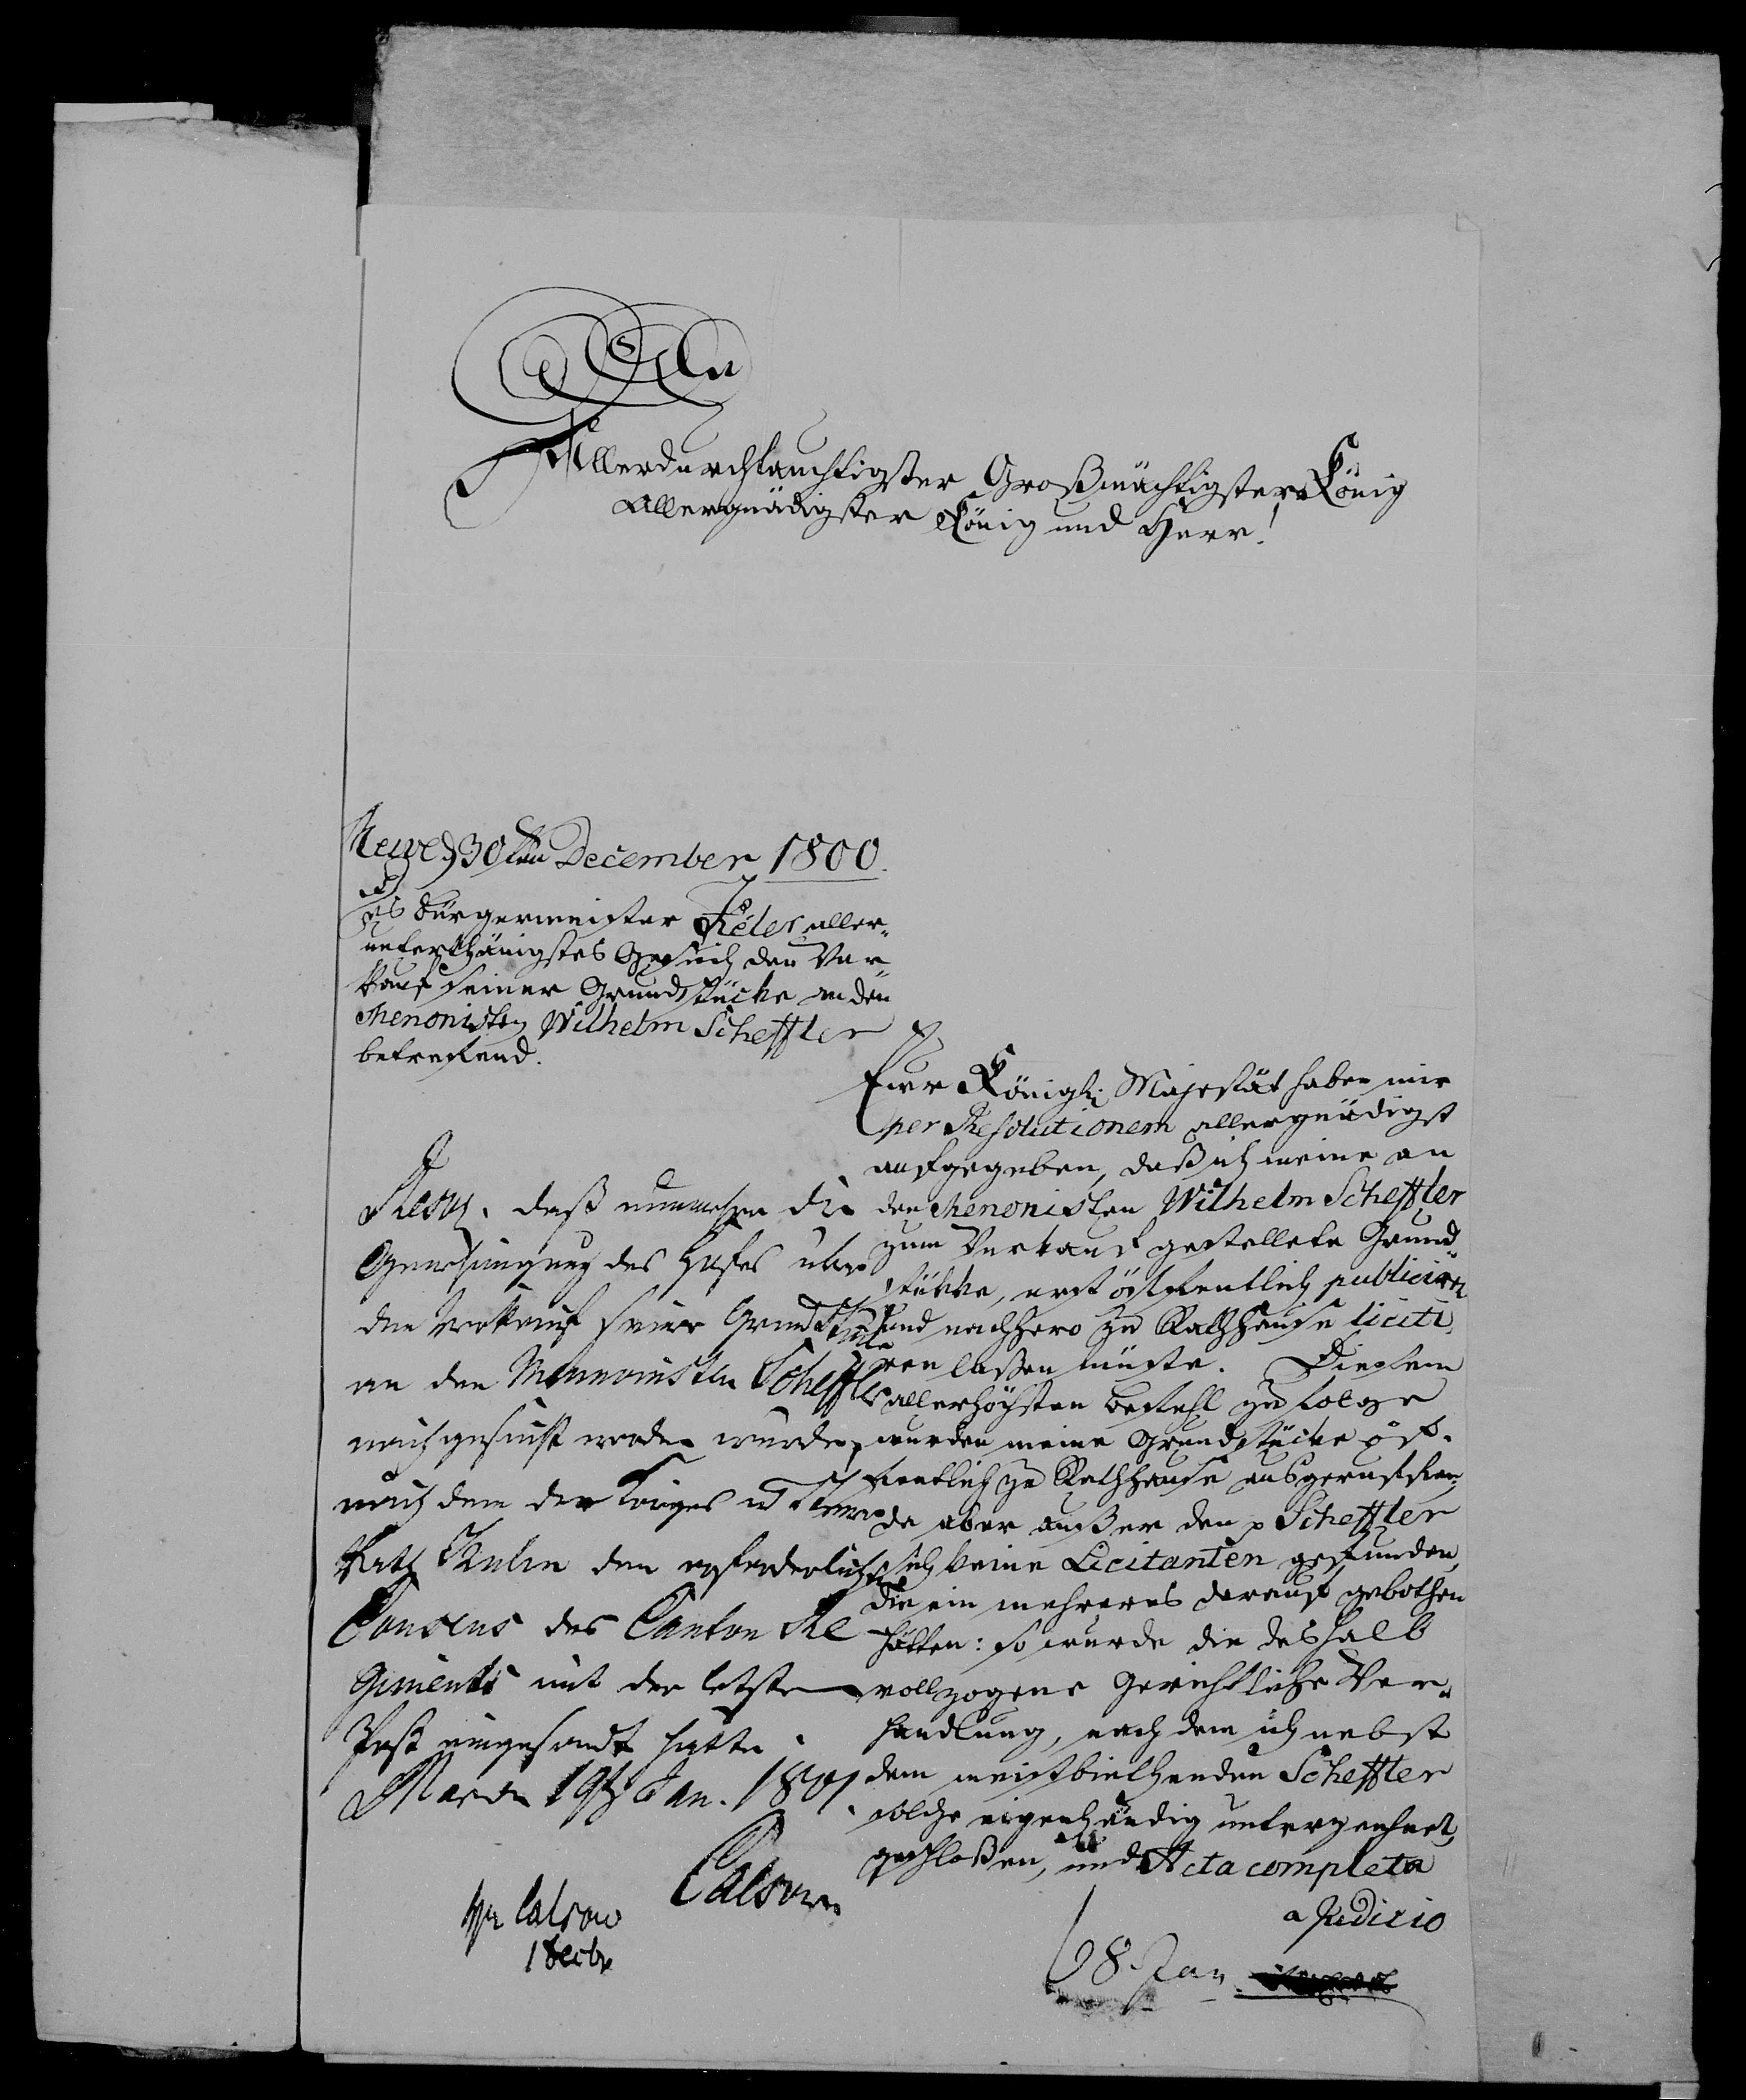 Allerdurchlauchtigster Großmächtigster König
Allergnädigster König und Herr!
Mewe d 30ten December 1800.
Des Bürgermeister aller-
unterthänigstes Gesuch den Ver-
kauf seiner Grundstücke an den
Menonisten Wilhelm Scheffler
betreffend.
Eure Königl. Majestät haben mir
per Resolutionem allergnädigst
aufgegeben, daß ich meine an
den Menonisten Wilhelm Scheffler
zum Verkauf gestellete Grund-
stükke, erst öffentlich publiciren
und nachhero zu Rathhause liciti-
ren laßen müste. Diesem
allerhöchsten Befehl zu folge
wurden meine Grundstücke öf-
fentlich zu Rathhause ausgeruffen,
da aber außer den p Scheffler
sich keine Licitanten gefunden,
die ein mehreres darauf gebothen
hätten: so wurde die deshalb
vollzogene Gerichtliche Ver-
handlung, nach dem ich nebst
dem meistbiethenden Scheffler
solche eigenhändig unterzeichnet,
geschloßen, und Acta completa
a Judicio
Resol. daß nunmehro die
Genehmigung des Hofes über
den Verkauf seiner Grundstücke
an den Mennonisten Scheffler
nachgesucht werden würde,
nach dem der Krieges u
Rath den erforderlichen
Consens des Canton Re
giments mit der letzten
Post eingesandt hatte.
Marw d 19t Jan. 1801.
Calsow
Hr Calsow
8 Jan